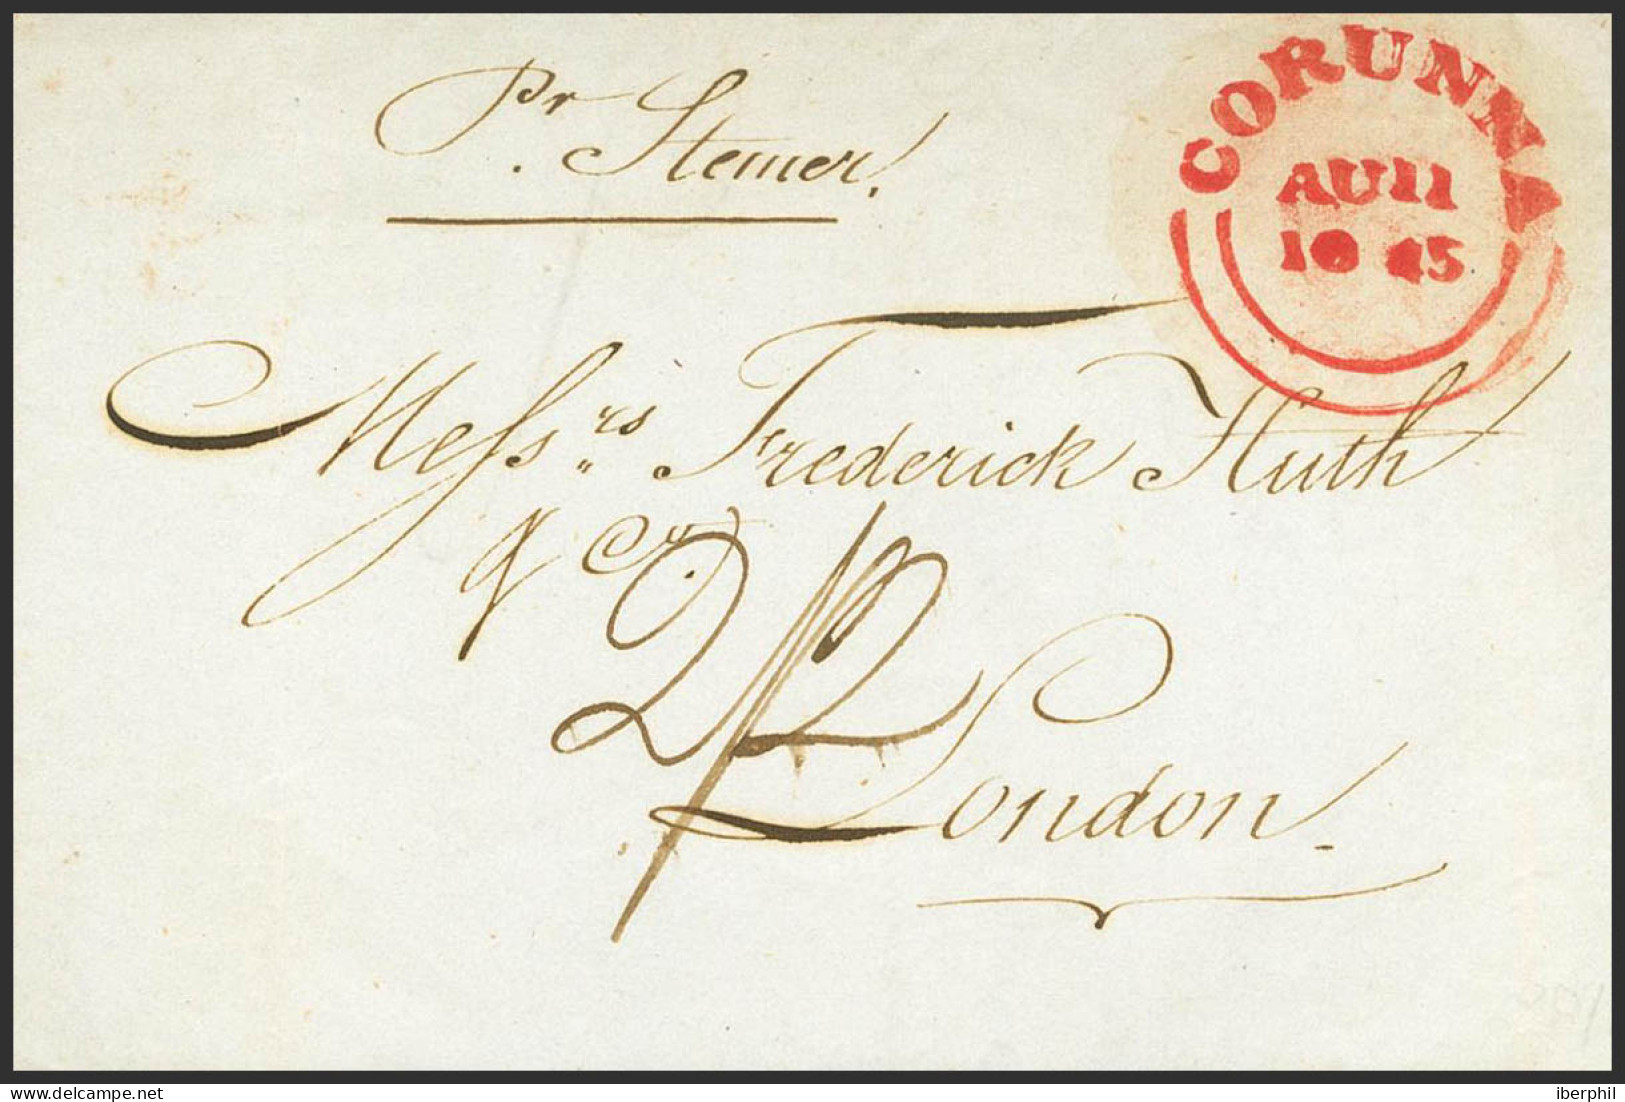 Pr. Stemer.
CORUNNA
AU 11
18 45
Messrs. Frederick Huth
& Co.
2/2
London.
delcampe.net
iberphil